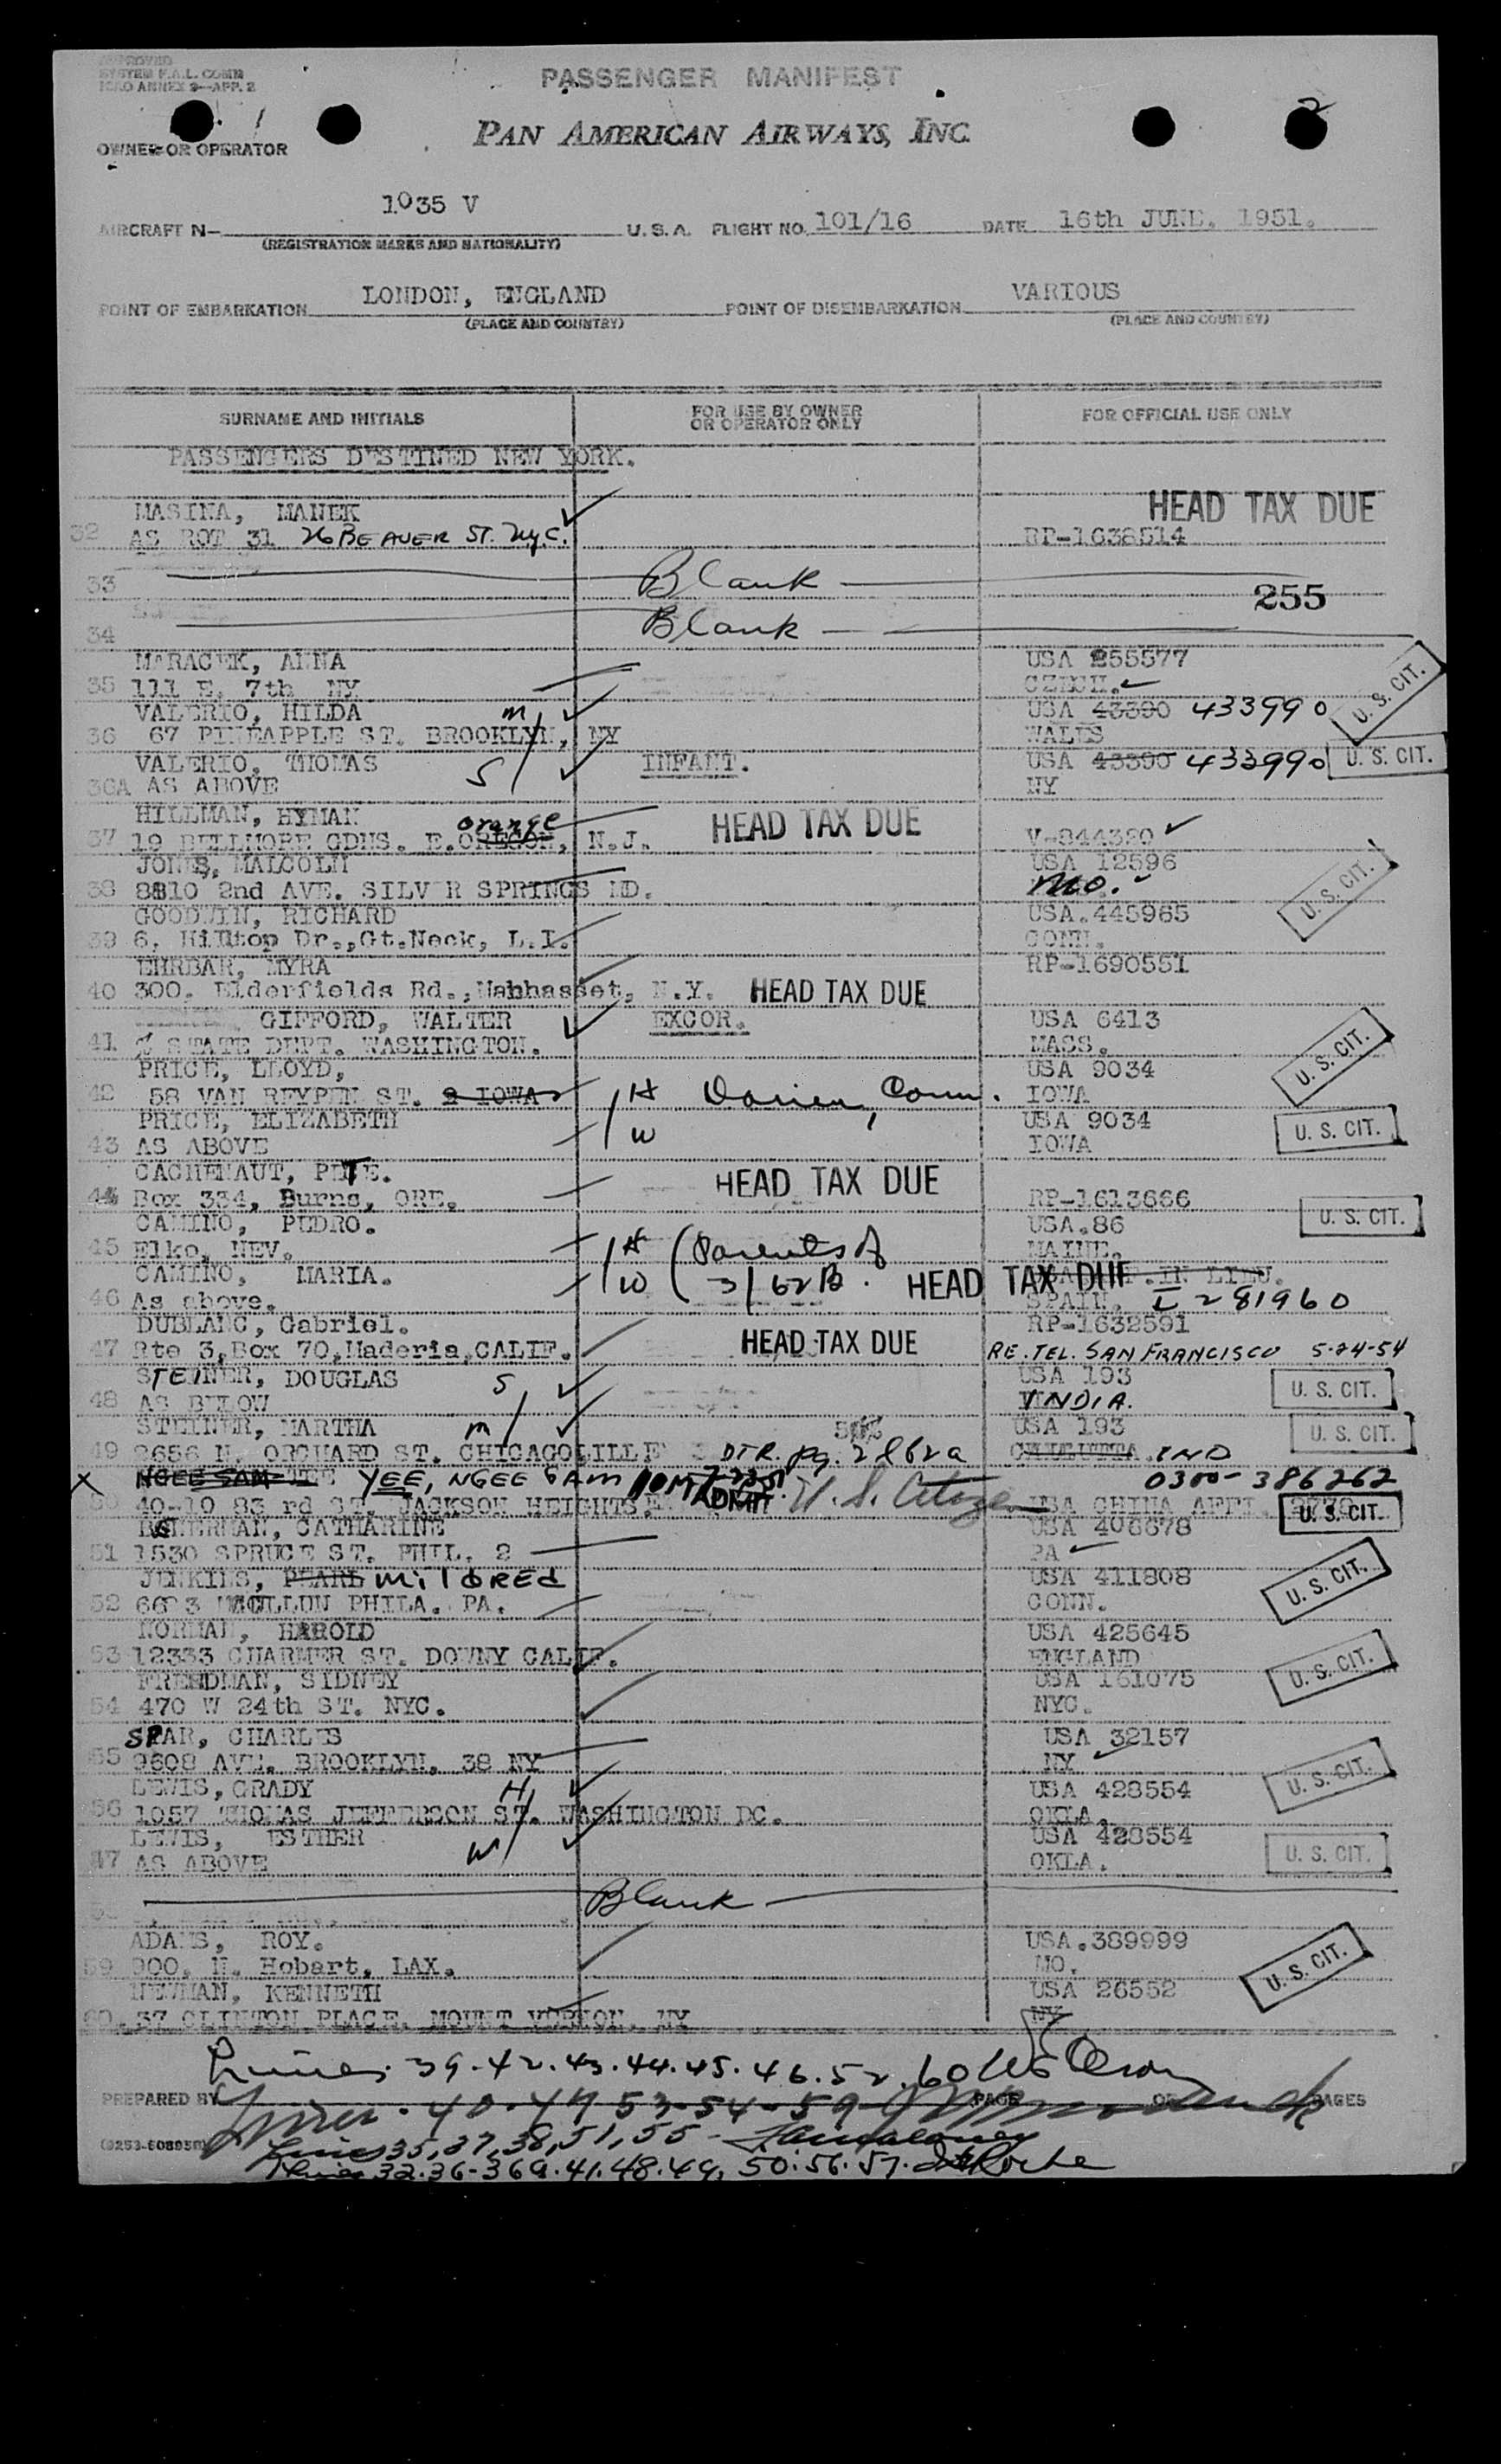 APPROVED
SYSTEM F.A.L. COMM
ICAO ANNEX 9—APP. 2
PASSENGER MANIFEST
2
PAN AMERICAN AIRWAYS, INC
OWNER OR OPERATOR
1035 V
AIRCRAFT N— U. S. A. FLIGHT NO. 101/16 DATE 16th JUNE. 1951.
(REGISTRATION MARKS AND NATIONALITY)
LONDON, ENGLAND VARIOUS
POINT OF EMBARKATION POINT OF DISEMBARKATION
(PLACE AND COUNTRY) (PLACE AND COUNTRY)
SURNAME AND INITIALS FOR USE BY OWNER OR OPERATOR ONLY FOR OFFICIAL USE ONLY
PASSENGERS DESTINED NEW YORK.
MASINA, MANEK HEAD TAX DUE
32 AS ROT 31 26 BEAVER ST. NYC. RP-1638514
33 Blank
255
34 Blank
MARACEK, ANNA USA 255577
35 111 E. 7th NY CZECH.
VALERIO, HILDA M USA 43390 433990 U. S. CIT.
36 67 PINEAPPLE ST. BROOKLYN, NY WALES
VALERIO, THOMAS S INFANT. USA 43390 433990 U. S. CIT.
36A AS ABOVE NY
HILLMAN, HYMAN orange HEAD TAX DUE
37 19 BELLMORE GDNS. E.OREGON, N.J. V-844320
JONES, MALCOLM USA 12596
38 8810 2nd AVE. SILVER SPRINGS MD. MO. U. S. CIT.
GOODWIN, RICHARD USA.445965
39 6. Hilltop Dr.,Gt.Neck, L.I. CONN.
EHRBAR, MYRA RP-1690551
40 300. Elderfields Rd.,Manhasset, N.Y. HEAD TAX DUE
GIFFORD, WALTER EXCOR. USA 6413
41 % STATE DEPT. WASHINGTON. MASS.
PRICE, LLOYD, USA 9034 U. S. CIT.
42 58 VAN REYPEN ST. 2 IOWA H Darien, Conn. IOWA
PRICE, ELIZABETH USA 9034
43 AS ABOVE W IOWA U. S. CIT.
CACHENAUT, PETE. HEAD TAX DUE
44 Box 334, Burns, ORE. RP-1613666
CAMINO, PEDRO. USA.86 U. S. CIT.
45 Elko, NEV. H (Parents of MAINE.
CAMINO, MARIA. W 3/62B. HEAD TAX DUE IN LIEU.
46 As above. SPAIN. I 281960
DUBLANC, Gabriel. RP-1632591
47 Rte 3,Box 70,Maderia,CALIF. HEAD TAX DUE RE. TEL. SAN FRANCISCO 5-24-54
STEINER, DOUGLAS S USA 193
48 AS BELOW INDIA. U. S. CIT.
STEINER, MARTHA M USA 193
49 2656 N. ORCHARD ST. CHICAGO CALCUTTA. IND U. S. CIT.
X NGEE SAM YEE YEE, NGEE SAM ADMIT U. S. Citizen 0300-386262
50 40-10 83 rd ST. JACKSON HEIGHTS USA CHINA AFFI.
CATHARINE USA 406678 U. S. CIT.
51 1530 SPRUCE ST. PHIL. 2 PA
JENKINS, PEARL MILDRED USA 411808
52 CONN. U. S. CIT.
PHILA. PA.
NORMAN, HAROLD USA 425645
53 12333 CHARMER ST. DOWNY CALIF. ENGLAND
FREEDMAN, SIDNEY USA 161075 U. S. CIT.
54 470 W 24th ST. NYC. NYC.
SPAR, CHARLES USA 32157
55 9608 AVE. BROOKLYN, 38 NY NY
LEWIS, GRADY H USA 428554 U. S. CIT.
56 1057 THOMAS JEFFERSON ST. WASHINGTON DC. OKLA.
LEWIS, ESTHER W USA 428554
57 AS ABOVE OKLA. U. S. CIT.
Blank
ADAMS, ROY. USA.389999
59 900. N. Hobart, LAX. MO. U. S. CIT.
NEWMAN, KENNETH USA 26552
60. 37 CLINTON PLACE. MOUNT VERNON. NY NY
Lines. 39.42.43.44.45.46.52.60
PREPARED BY PAGE OF PAGES
Lines. 40.47 53-54-59
Lines 35,37,38,51,55
Lines 32.36-36a.41.48.49. 50.56.57.